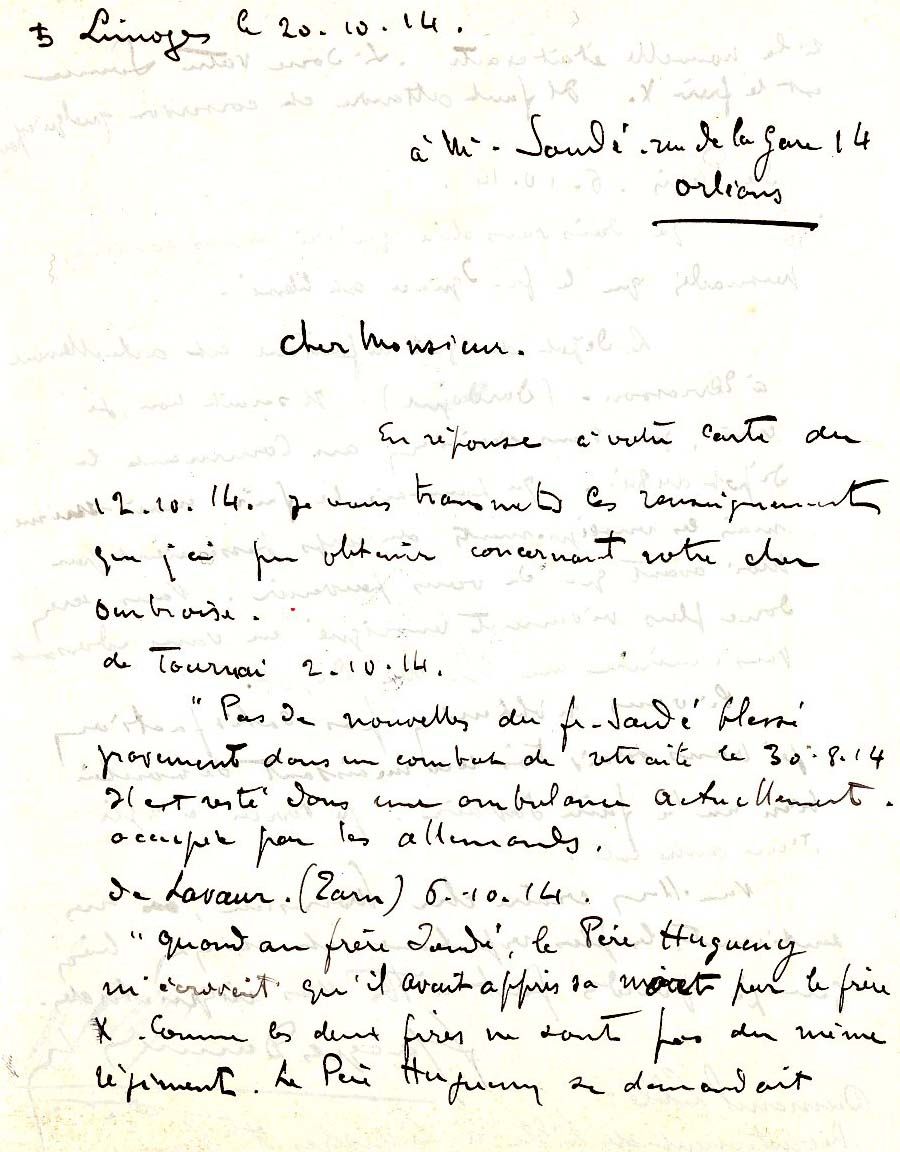 Limoges le 20.10.14.
à Mr. Soudé. rue de la Gare 14
Orléans
Cher Monsieur.
En réponse à votre carte du
12.10.14. je vous transmets les renseignements
que j'ai pu obtenir concernant votre cher
Ambroise.
de Tournai 2.10.14.
" Pas de nouvelles du fr. Soudé blessé
gravement dans un combat de retraite le 30.8.14
Il est resté dans une ambulance actuellement.
occupée par les allemands.
de Lavaur. (Tarn) 6.10.14.
" Quand au frère Soudé, le Père Hugueny
m'écrivait qu'il avait appris sa mort par le frère
X. Comme les deux frères ne sont pas du même
régiment. Le Père Hugueny se demandait